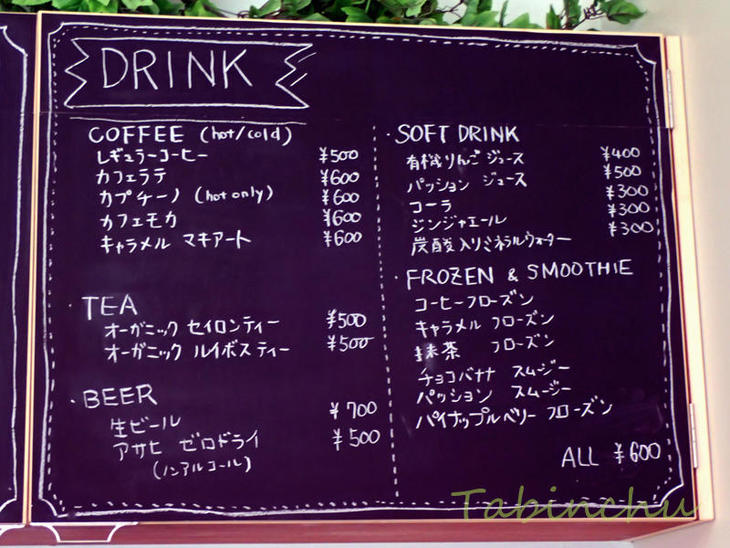 DRINK
COFFEE (hot/cold)
レギュラーコーヒー ¥500
カフェラテ ¥600
カプチーノ (hot only) ¥600
カフェモカ ¥600
キャラメル マキアート ¥600
・TEA
オーガニック セイロンティー ¥500
オーガニック ルイボスティー ¥500
・BEER
生ビール ¥700
アサヒ ゼロドライ ¥500
(ノンアルコール)
・SOFT DRINK
有機りんごジュース ¥400
パッション ジュース ¥500
コーラ ¥300
ジンジャエール ¥300
炭酸入りミネラルウォーター ¥300
・FROZEN & SMOOTHIE
コーヒーフローズン
キャラメル フローズン
抹茶 フローズン
チョコバナナ スムージー
パッション スムージー
パイナップルベリー フローズン
ALL ¥600
Tabinchu